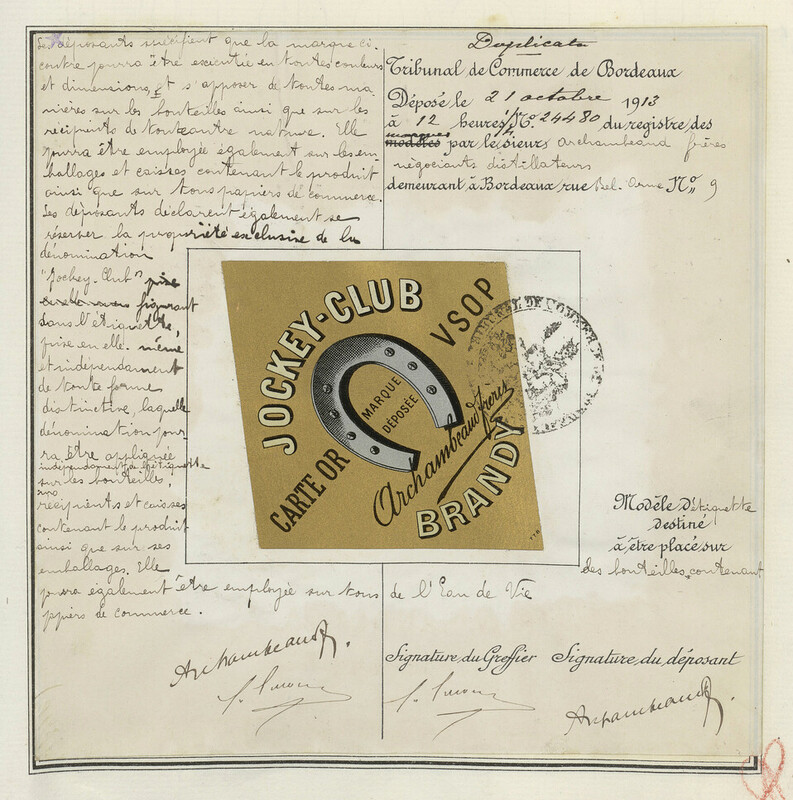 Les déposants spécifient que la marque ci-
contre pourra être executée en toutes couleurs
et dimensions, et s'apposer de toutes ma-
nières sur les bouteilles ainsi que sur les
récipients de toute autre nature. Elle
pourra être employée également sur les em-
ballages et caisses contenant le produit
ainsi que sur tous papiers de commerce.
Les déposants déclarent également se
réserver la propriété exclusive de la
dénomination
"Jockey-Club" prise
figurant
dans l'étiquette,
prise en elle-même
et indépendamment
de toute forme
distinctive, laquelle
dénomination pour-
ra être appliquée
indépendamment de l'étiquette
sur les bouteilles,
récipients et caisses
contenant le produit
ainsi que sur ses
emballages. Elle
pourra également être employée sur tous
papiers de commerce.
Archambeaud
Duplicata
Tribunal de Commerce de Bordeaux
Déposé le 21 octobre 1913
à 12 heures No. 24480 du registre des
marques
modèles par le sieurs Archambeaud frères
négociants distillateurs
demeurant à Bordeaux rue Bel-Orme No. 9
JOCKEY-CLUB
VSOP
MARQUE
DÉPOSÉE
CARTE OR
Archambeaud frères
BRANDY
TRIBUNAL DE COMMERCE DE
BORDEAUX
Modèle d'étiquette
destiné
à être placé sur
des bouteilles contenant
de l'Eau de Vie
Signature du Greffier Signature du déposant
Archambeaud